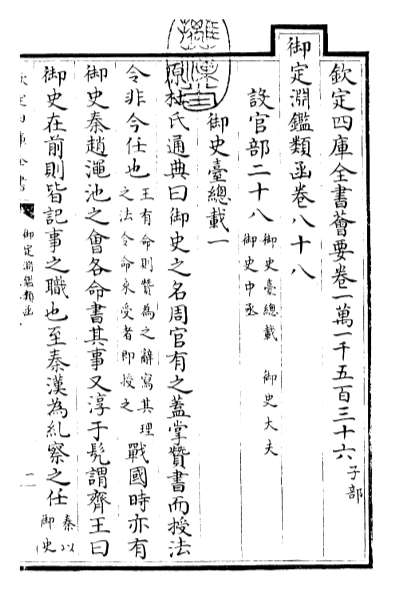 欽定四庫全書薈要卷一萬一千五百三十六 子部
御定淵鑑類函卷八十八
設官部二十八 御史臺總載 御史大夫
御史中丞
御史臺總載一
原杜氏通典曰御史之名周官有之蓋掌贊書而授法
令非今任也 王有命則贊為之辭寫其理
之法令命來受者即授之 戰國時亦有
御史秦趙渾池之會各命書其事又淳于髡謂齊王曰
御史在前則皆記事之職也至秦漢為糾察之任 秦以
御史
欽定四庫全書 御定淵鑑類函
一